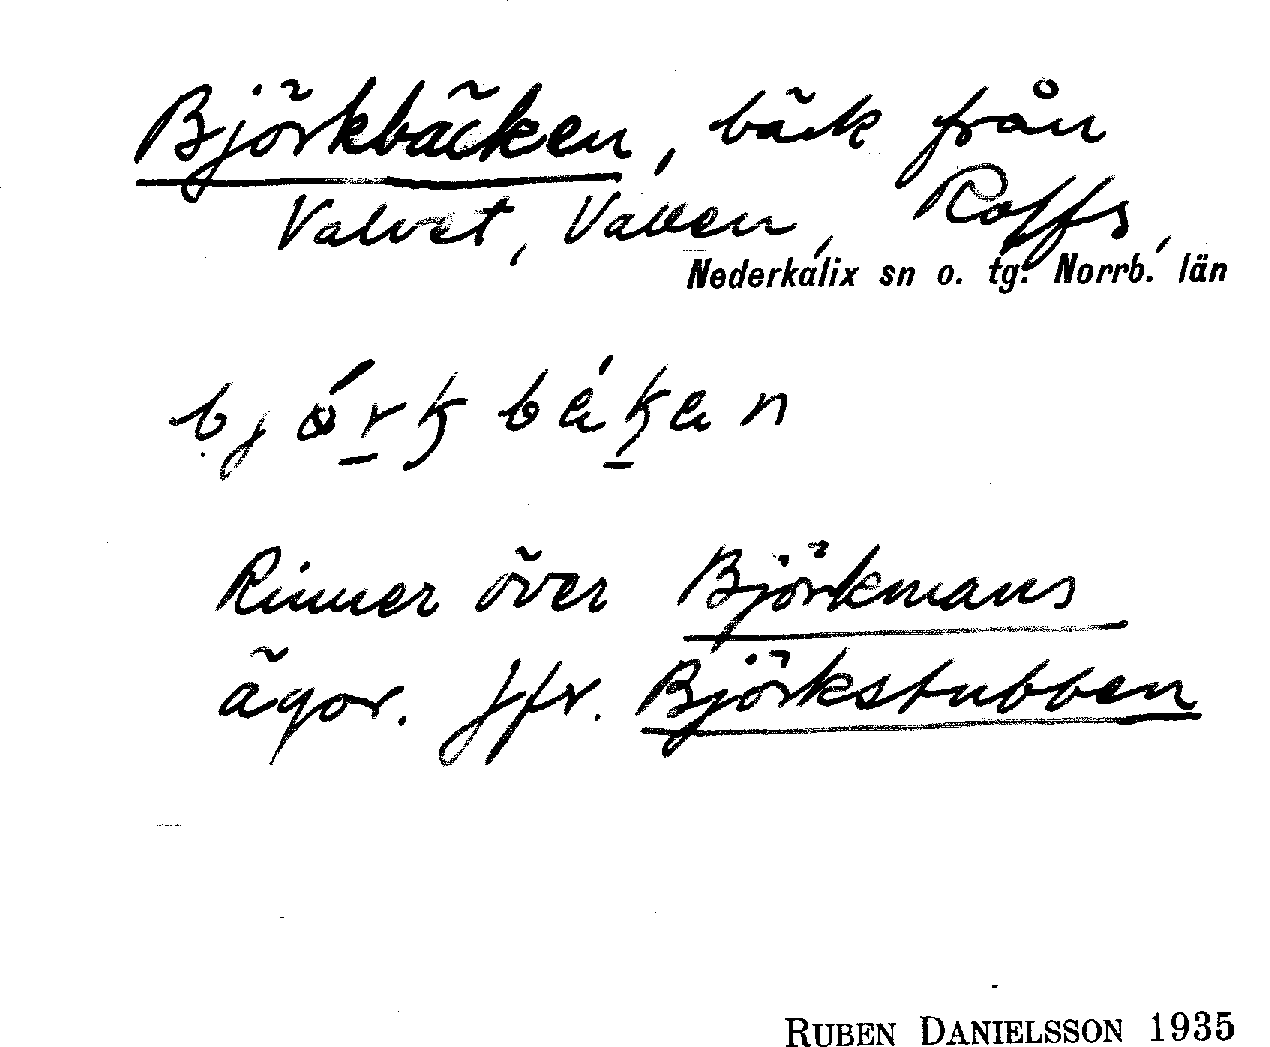 Björkbäcken, bäck från
Valvet, Vallen, Rolfs,
Nederkalix sn o. tg. Norrb. län
Rinner över Björkmans
ägor. Jfr. Björkstubben
RUBEN DANIELSSON 1935